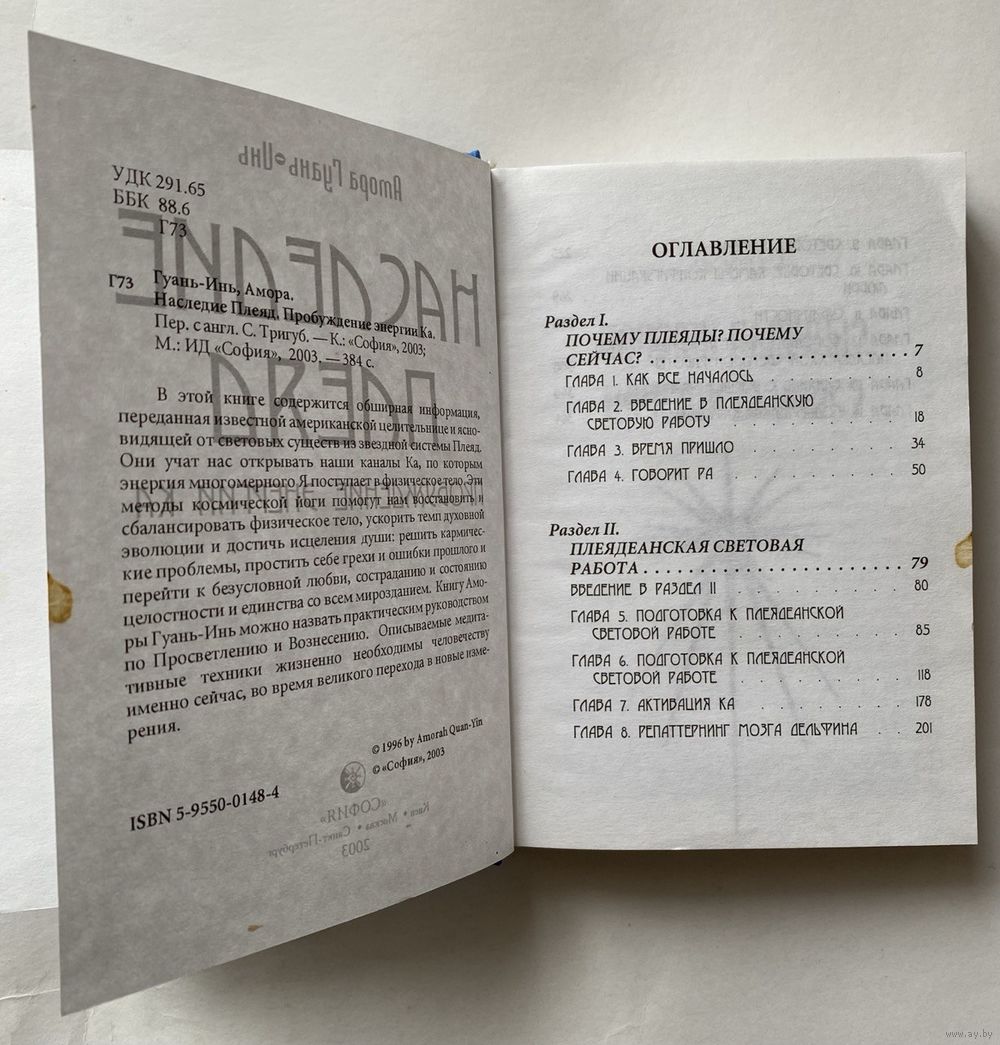 УДК 291.65
ББК 88.6
Г73
Г73 Гуань-Инь, Амора.
Наследие Плеяд. Пробуждение энергии Ка.
Пер. с англ. С. Тригуб. — К.: «София», 2003;
М.: ИД «София», 2003. — 384 с.
В этой книге содержится обширная информация,
переданная известной американской целительнице и ясно-
видящей от световых существ из звездной системы Плеяд.
Они учат нас открывать наши каналы Ка, по которым
энергия многомерного Я поступает в физическое тело. Эти
методы космической йоги помогут нам восстановить и
сбалансировать физическое тело, ускорить темп духовной
эволюции и достичь исцеления души: решить кармичес-
кие проблемы, простить себе грехи и ошибки прошлого и
перейти к безусловной любви, состраданию и состоянию
целостности и единства со всем мирозданием. Книгу Амо-
ры Гуань-Инь можно назвать практическим руководством
по Просветлению и Вознесению. Описываемые медита-
тивные техники жизненно необходимы человечеству
именно сейчас, во время великого перехода в новые изме-
рения.
© 1996 by Amorah Quan-Yin
© «София», 2003
ISBN 5-9550-0148-4
Амора Гуань-Инь
НАСЛЕДИЕ
ПЛЕЯД
ПРОБУЖДЕНИЕ ЭНЕРГИИ КА
«СОФИЯ»
Киев • Москва • Санкт-Петербург
2003
ОГЛАВЛЕНИЕ
Раздел I.
ПОЧЕМУ ПЛЕЯДЫ? ПОЧЕМУ
СЕЙЧАС? . . . . . . . . . . . . . . . . . . . . . . . . 7
ГЛАВА 1. КАК ВСЕ НАЧАЛОСЬ . . . . . . . . 8
ГЛАВА 2. ВВЕДЕНИЕ В ПЛЕЯДЕАНСКУЮ
СВЕТОВУЮ РАБОТУ . . . . . . . . . 18
ГЛАВА 3. ВРЕМЯ ПРИШЛО . . . . . . . . . 34
ГЛАВА 4. ГОВОРИТ РА . . . . . . . . . . 50
Раздел II.
ПЛЕЯДЕАНСКАЯ СВЕТОВАЯ
РАБОТА . . . . . . . . . . . . . . . . . . . . . . . . 79
ВВЕДЕНИЕ В РАЗДЕЛ II . . . . . . . . . . 80
ГЛАВА 5. ПОДГОТОВКА К ПЛЕЯДЕАНСКОЙ
СВЕТОВОЙ РАБОТЕ . . . . . . . . . 85
ГЛАВА 6. ПОДГОТОВКА К ПЛЕЯДЕАНСКОЙ
СВЕТОВОЙ РАБОТЕ . . . . . . . . . 118
ГЛАВА 7. АКТИВАЦИЯ КА . . . . . . . . . 178
ГЛАВА 8. РЕПАТТЕРНИНГ МОЗГА ДЕЛЬФИНА . . 201
www.ay.by